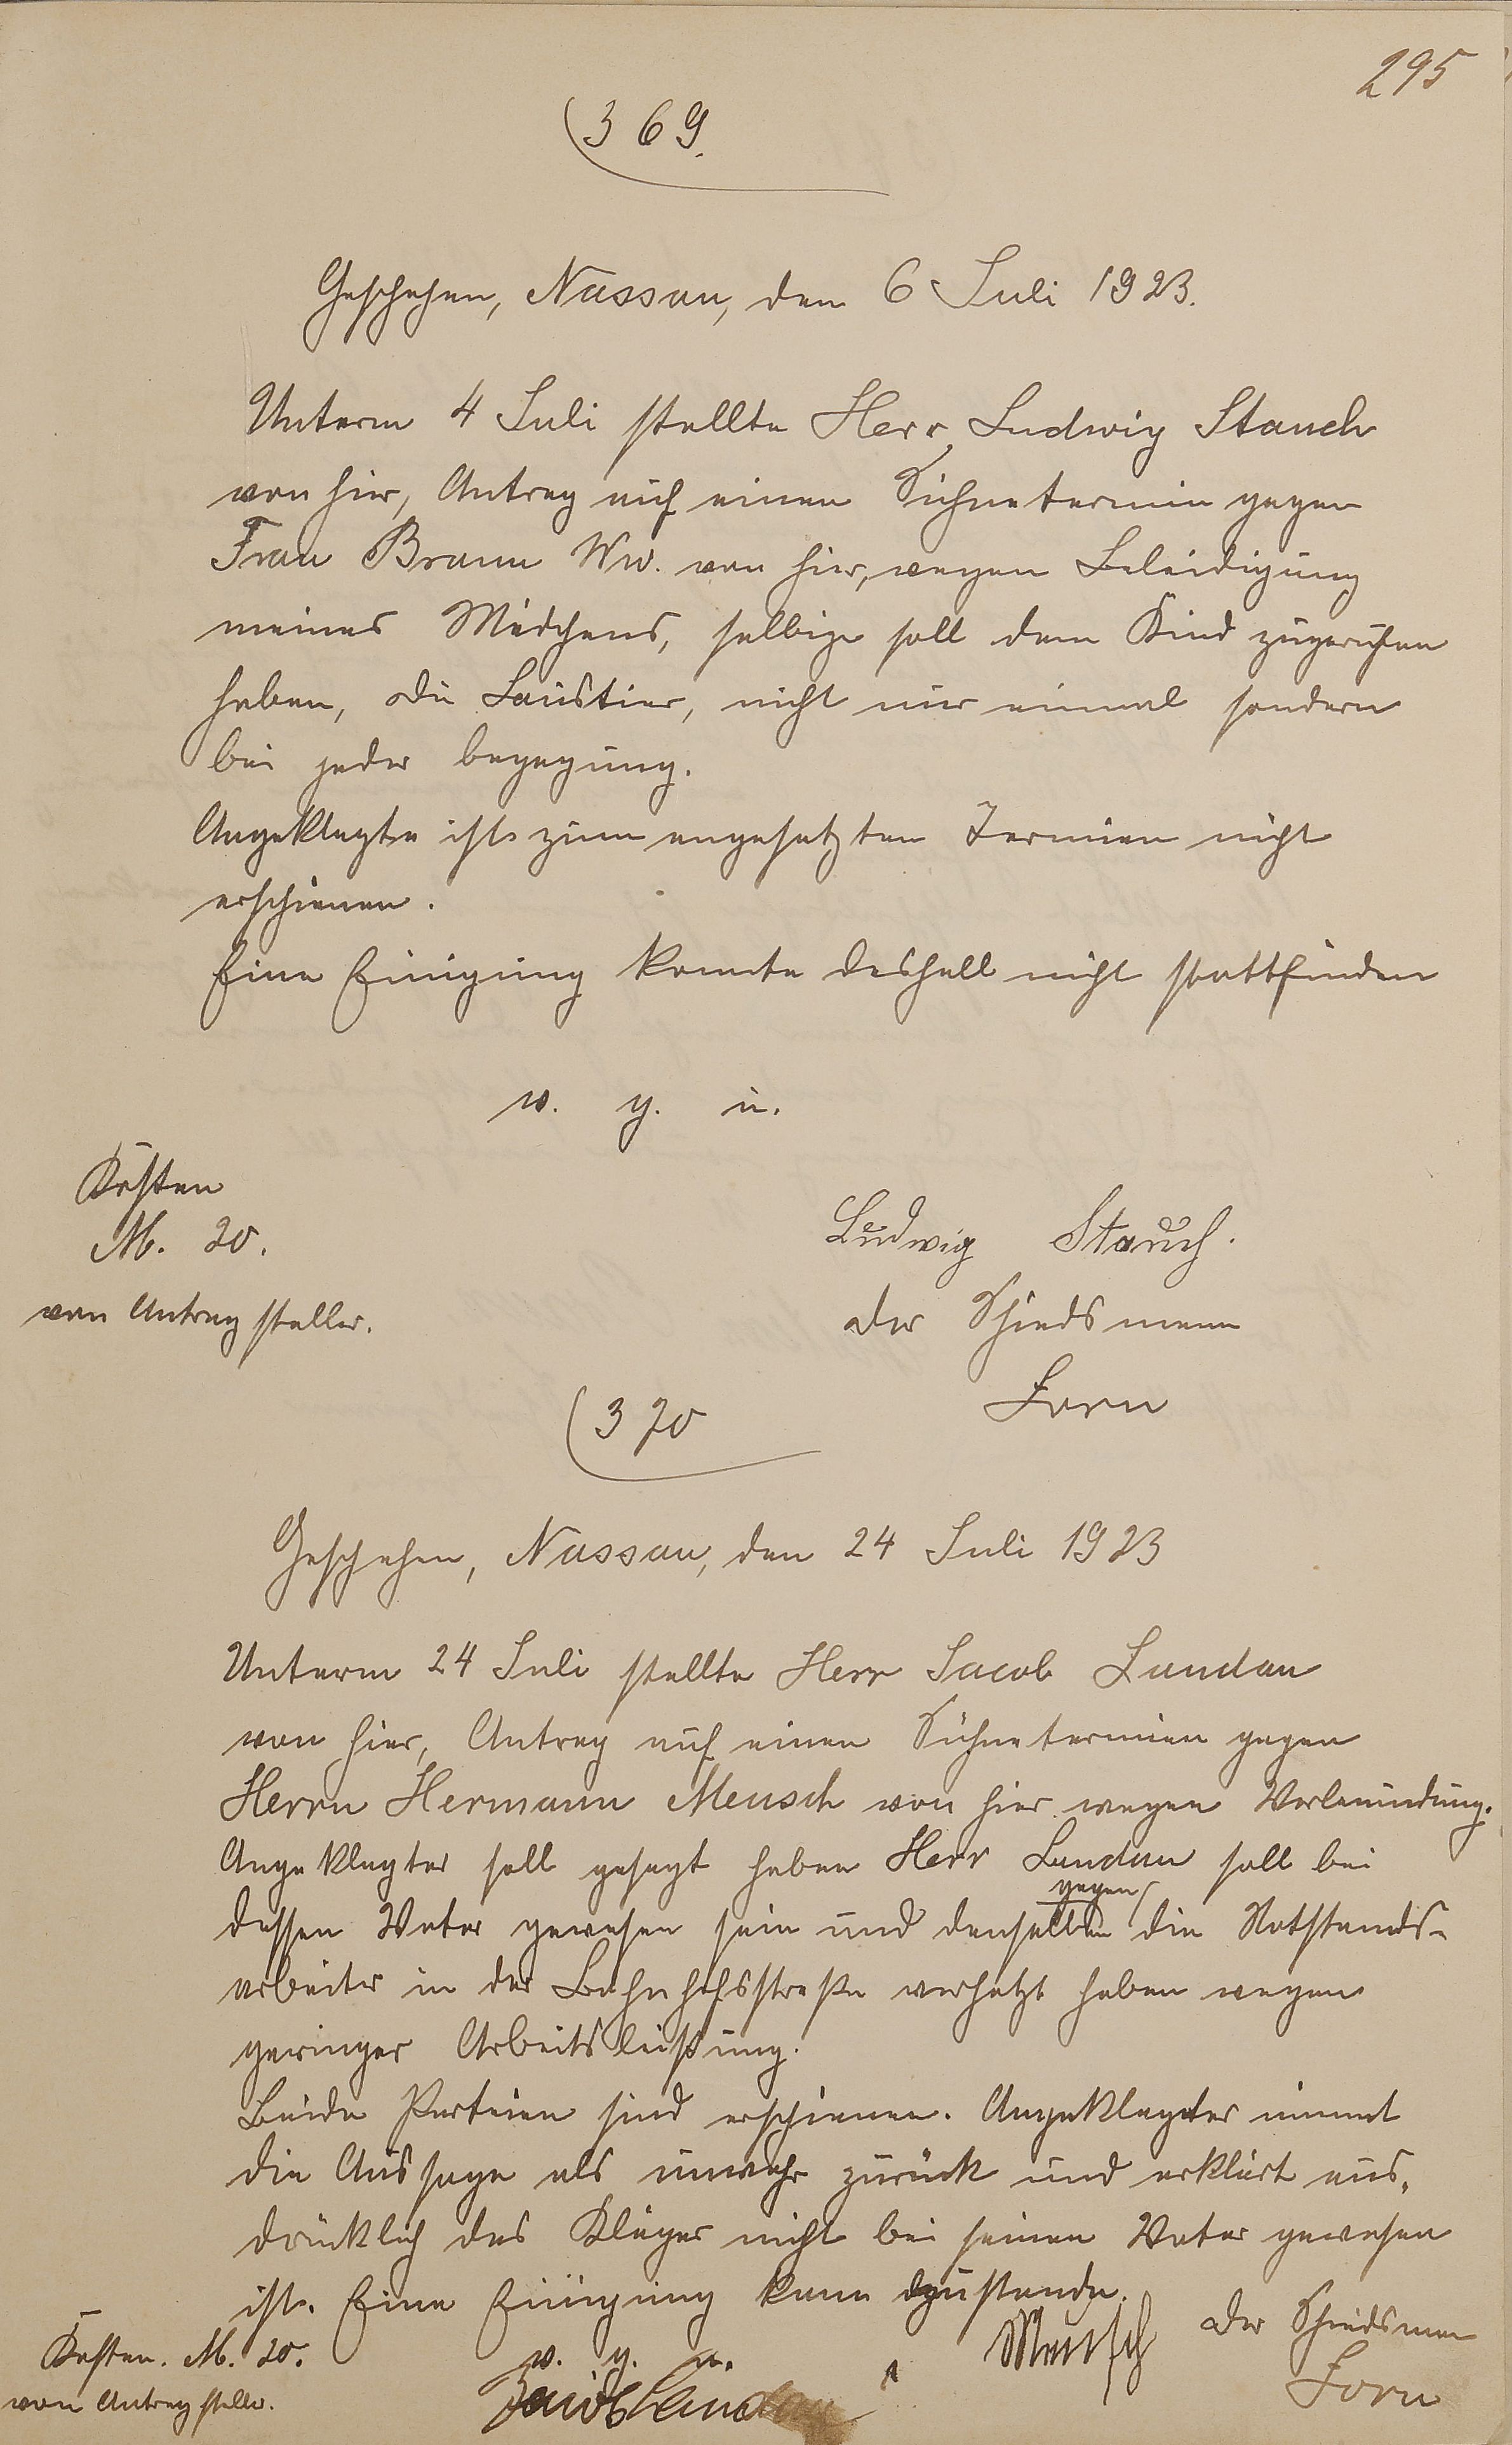 295
369.
Geschehen, Nassau, den 6 Juli 1923.
Unterm 4 Juli stellte Herr Ludwig Stauch
von hier, Antrag auf einen Sühnetermin gegen
Frau Braun Ww. von hier, wegen Beleidigung
meines Mädchens, selbige soll dem Kind zugerufen
haben, du Laustier, nicht nur einmal sondern
bei jeder begegung.
Angeklagte ist zum angesetzten Termien nicht
erschienen.
Eine Einigung konnte deshalb nicht stattfinden
v. g. u.
Kosten
M. 20.
von Antragsteller.
Ludwig Stauch.
der Schiedsmann
Forn
370
Geschehen, Nassau, den 24 Juli 1923
Unterm 24 Juli stellte Herr Jacob Landau
von hier, Antrag auf einen Sühnetermien gegen
Herrn Hermann Meusch von hier wegen Verleumdung.
Angeklagter soll gesagt haben Herr Landau soll bei
gegen
dessen Vater gewesen sein und denselben die Notstands-
arbeiter in der Bahnhofsstraße verhetzt haben wegen
geringer Arbeitsleistung.
Beide Parteien sind erschienen. Angeklagter nimmt
die Aussage als unwahr zurück und erklärt aus-
drücklich das Kläger nicht bei seinen Vater gewesen
ist. Eine Einigung kam zustande.
Kosten. M. 20.
von Antragsteller.
v. g. u.
Jacob Landau
Meusch
der Schiedsman
Forn